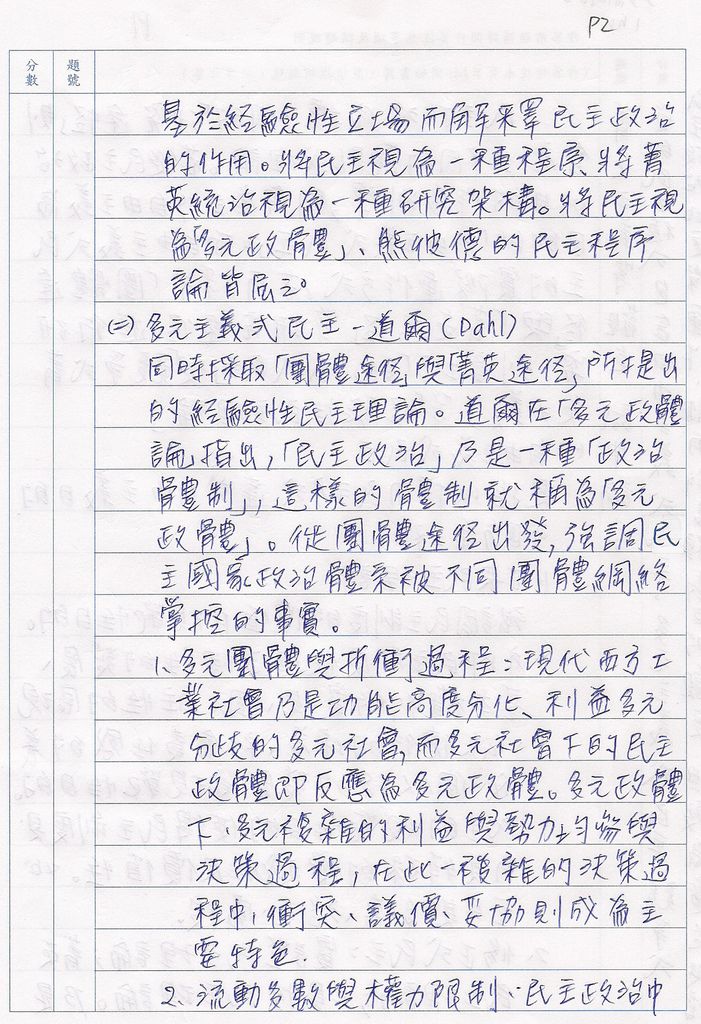 P2
分數
題號
基於經驗性立場而解釋民主政治
的作用。將民主視為一種程序、將菁
英統治視為一種研究架構。將民主視
為「多元政體」、熊彼德的民主程序
論皆屬之。
(二)多元主義式民主-道爾(Dahl)
同時採取「團體途徑」與「菁英途徑」所提出
的經驗性民主理論。道爾在「多元政體
論」指出,「民主政治」乃是一種「政治
體制」,這樣的體制就稱為「多元
政體」。從團體途徑出發,強調民
主國家政治體系被不同團體網絡
掌控的事實。
1、多元團體與折衝過程:現代西方工
業社會乃是功能高度分化、利益多元
分歧的多元社會,而多元社會下的民主
政體即反應為多元政體。多元政體
下,多元複雜的利益與勢力均參與
決策過程,在此一複雜的決策過
程中,衝突、議價、妥協則成為主
要特色.
2、流動多數與權力限制:民主政治中